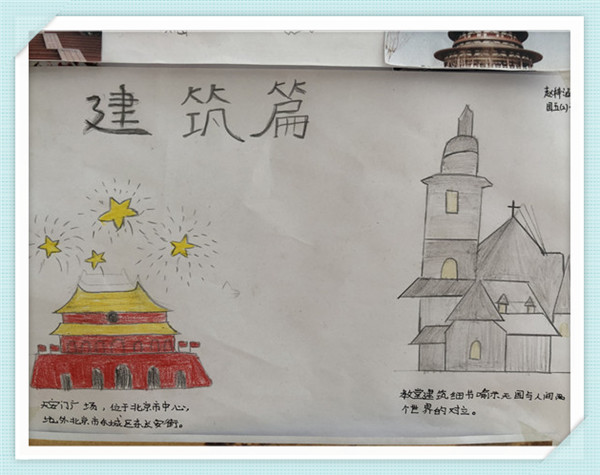 建筑篇
天安门广场，位于北京市中心，
地外北京市东城区东长安街。
教堂建筑细书喻示天国与人间两
个世界的对立。